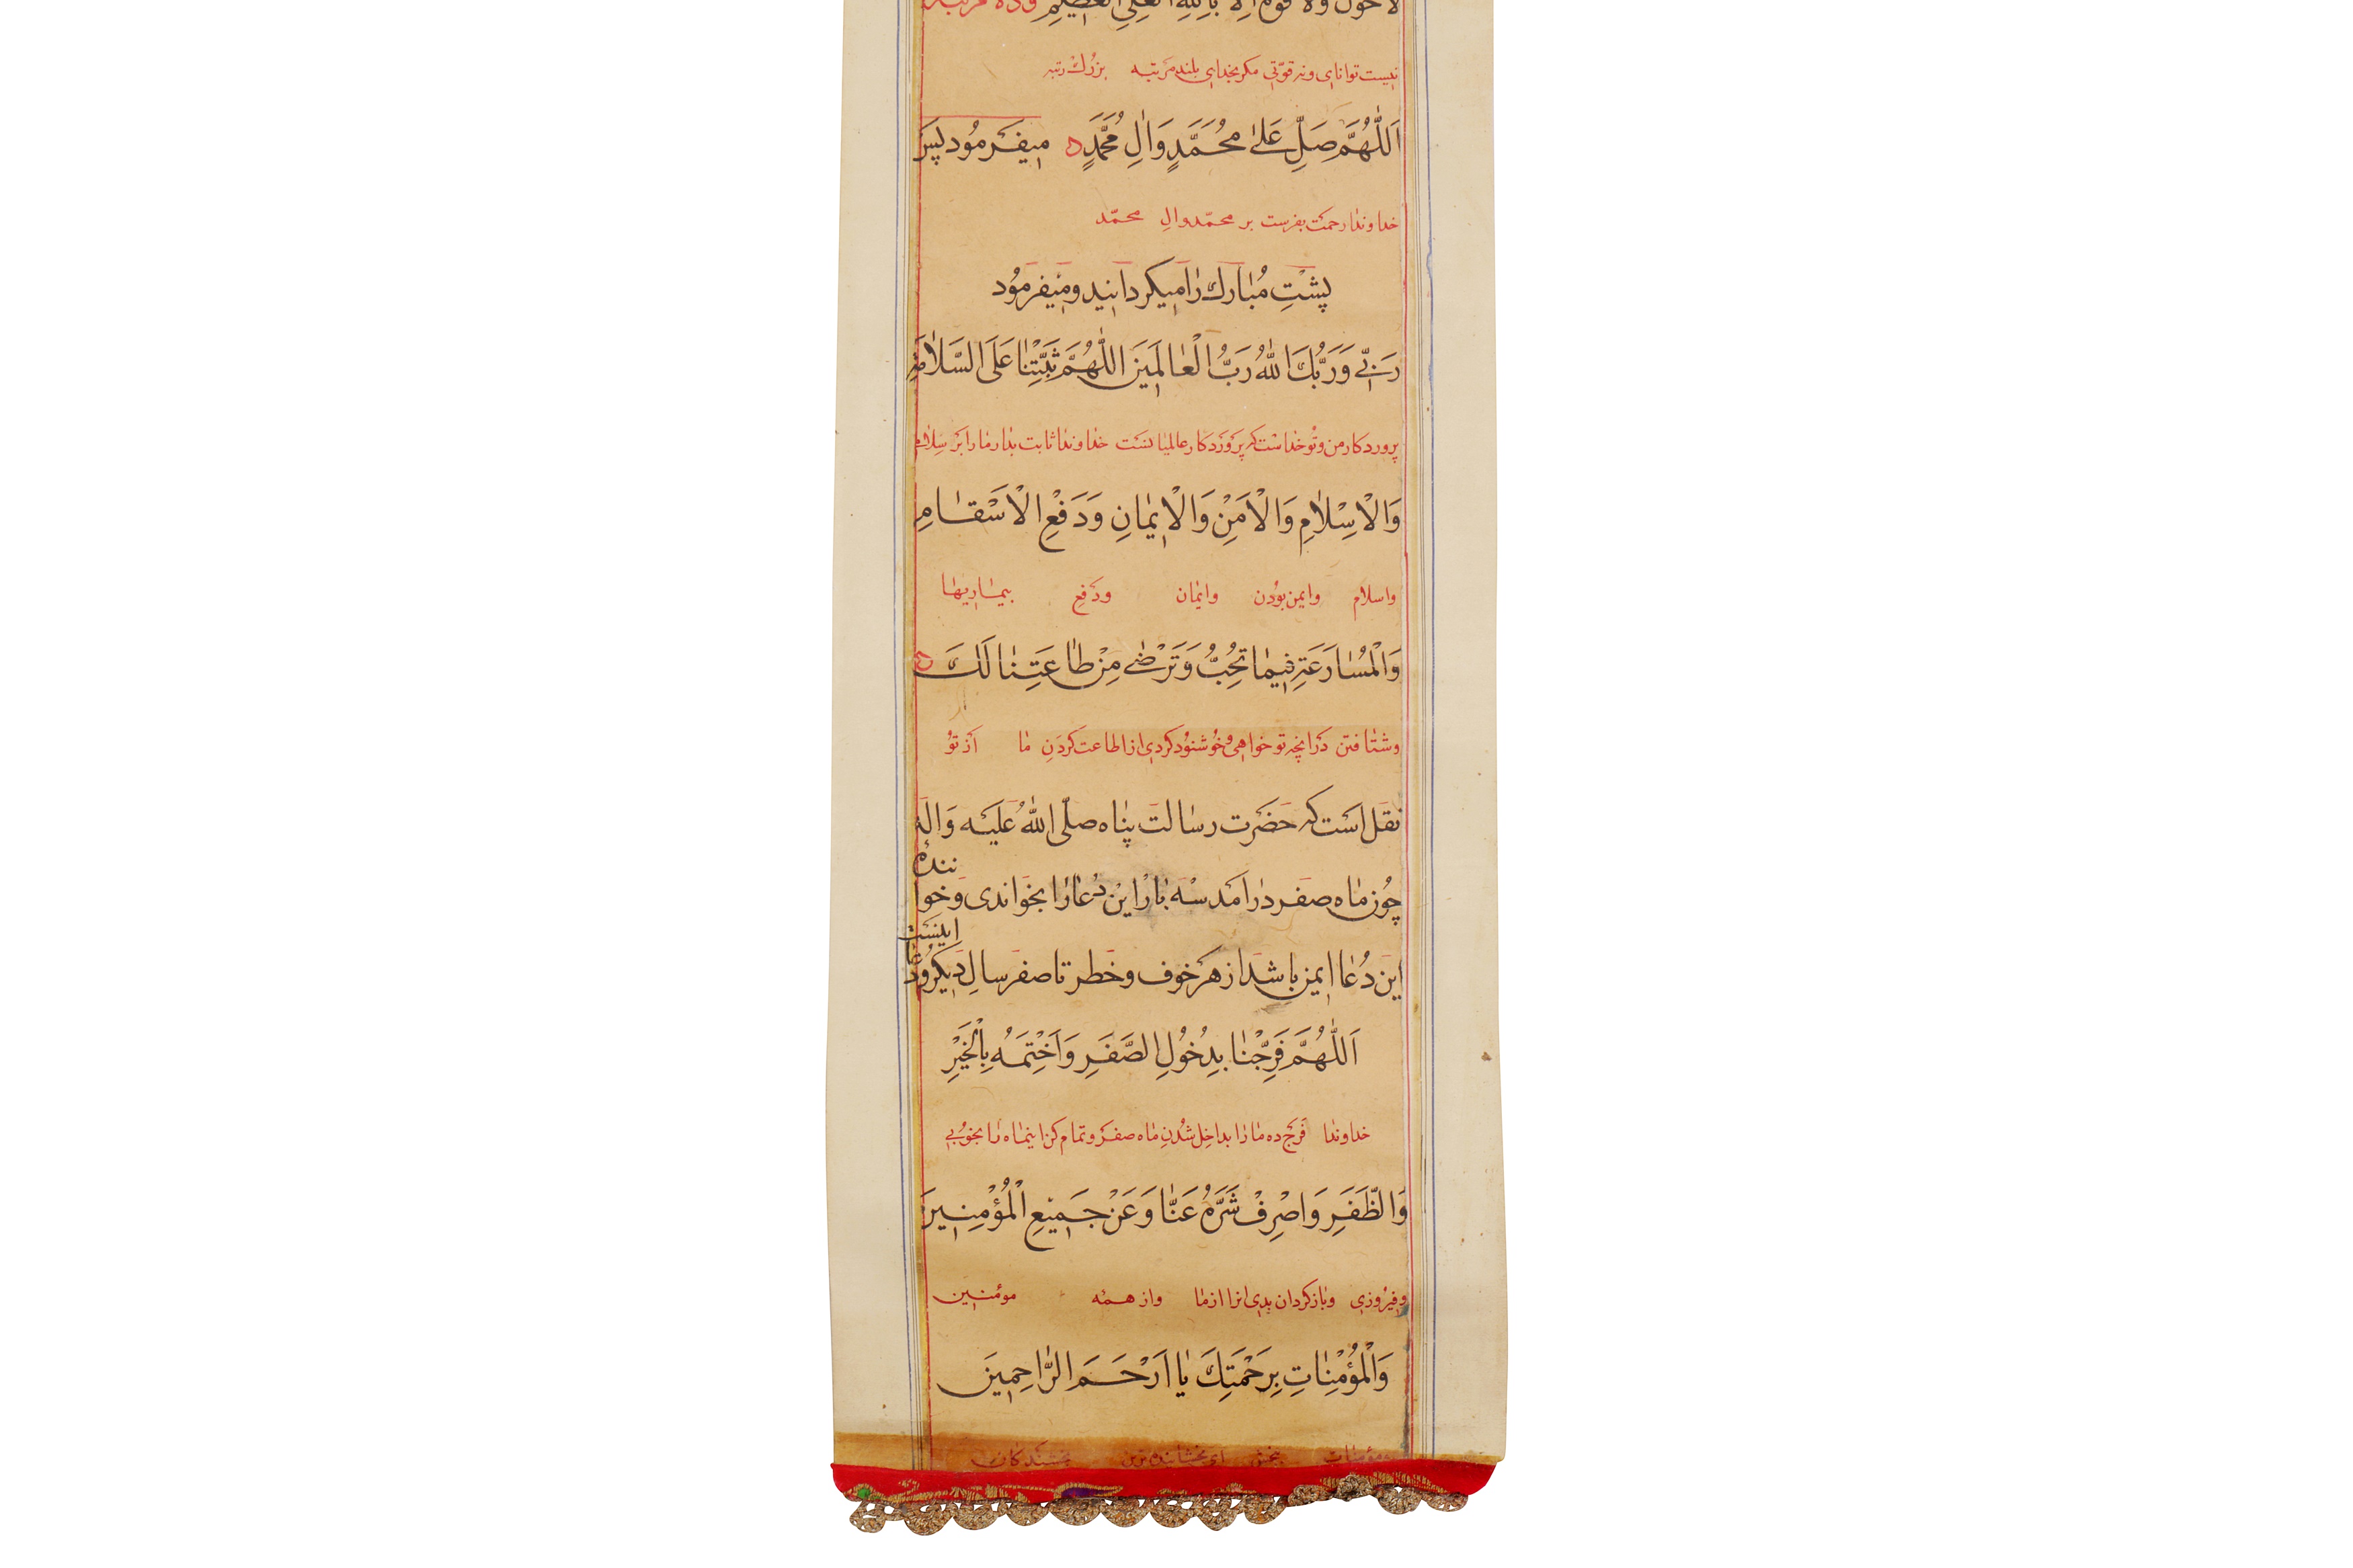 لا حول ولا قوة الا بالله العلي العظيم وده مرتبه
نیست توانای و نه قوتی مکر بخدای بلند مرتبه بزرك رتبه
اَللّٰهُمَّ صَلِّ عَلىٰ مُحَمَّدٍ وَاٰلِ مُحَمَّدٍ ه میفرمُود پسَ
خداوندا رحمت بفرست بر محمّد وال محمّد
پشْتِ مُبٰارك رٰا میکردانید و میفرمُود
رَبّي وَرَبُّكَ اللّٰهُ رَبُّ الْعٰالَمينَ اللّٰهُمَّ ثَبِّتْنٰا عَلَى السَّلاٰمَةِ
پروردکار من و تُو خداست که پَروَردکار عالمیانست خداوندا ثابت بدار ما را بَر سلامة
وَالْاِسْلاٰمِ وَالْاَمْنِ وَالْايمٰانِ وَدَفْعِ الْاَسْقٰامِ
واسلام وایمن بوُدن وایمٰان ودَفعِ بیمٰاریهٰا
وَالْمُسٰارَعَةِ فيمٰا تُحِبُّ وَتَرْضىٰ مِنْ طٰاعَتِنٰا لَكَ ه
وشتٰافتن دَر انچه تو خواهی و خُوشنوُد کردی از اطاعت کردَنِ مٰا اَز توُ
نقَل اسَت که حضَرت رسٰالت پنٰاه صلّی اللّٰهُ عَلیَه وَالَهِ
چوُن مٰاه صفَر درٰامَد سَه بٰار این دُعٰا رٰا بخوَاندی وَخوانندهٔ
این دُعٰا ایمن باشد از هَر خوف وخَطر تا صفر سالِ دَیکر وَدُعٰا اینسَت
اَللّٰهُمَّ فَرِّجْنٰا بِدُخُولِ الصَّفَرِ وَاَخْتِمَهُ بِالْخَيْرِ
خداوندا فَرَج ده مٰا رٰا بداخِل شُدنِ مٰاه صفَر و تمام کن اینمٰاه را بخوُبی
وَالظَّفَرِ وَاصْرِفْ شَرَّهُ عَنّٰا وَعَنْ جَميعِ الْمُؤْمِنينَ
وفیرُوزی وبٰاز کردان بدی انرا از مٰا واز همٔه موٴمنین
وَالْمُؤْمِنٰاتِ بِرَحْمَتِكَ يٰا اَرْحَمَ الرّٰاحِمينَ
ومؤمنات ای بخشاینده ترین